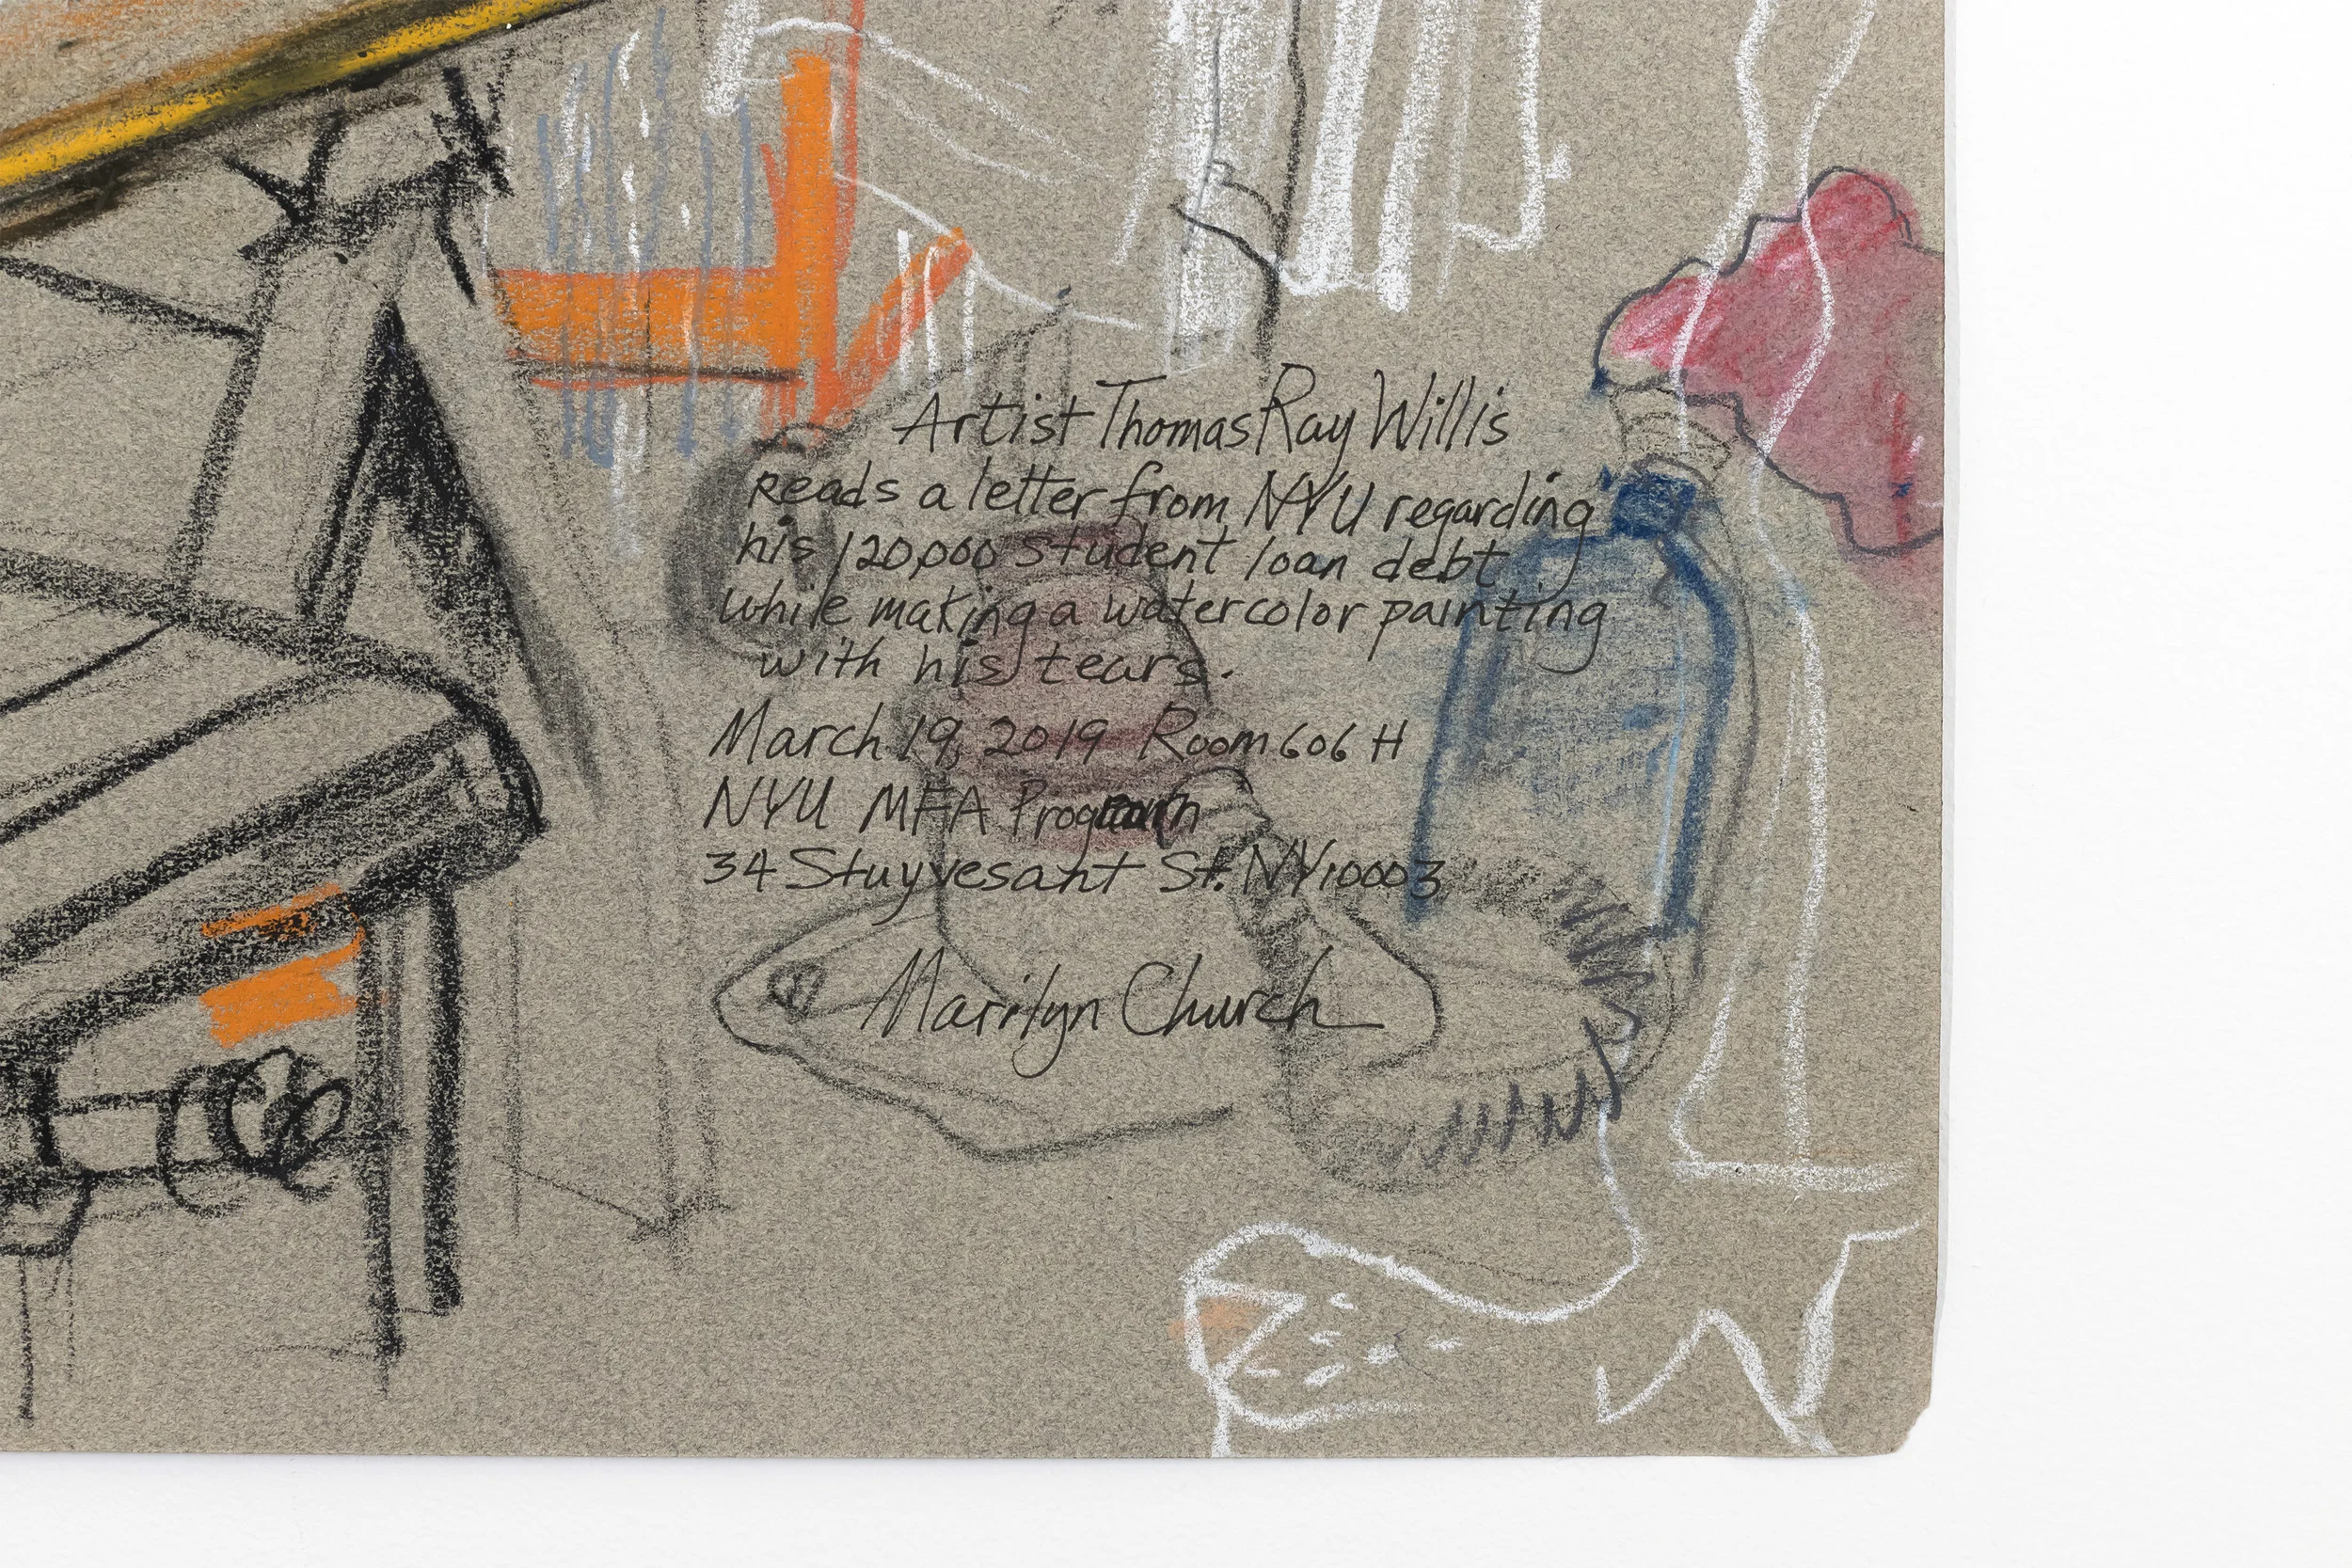 Artist Thomas Ray Willis
reads a letter from NYU regarding
his 120,000 student loan debt
while making a watercolor painting
with his tears.
March 19, 2019 Room 606 H
NYU MFA Program
34 Stuyvesant St. NY 10003
Marilyn Church